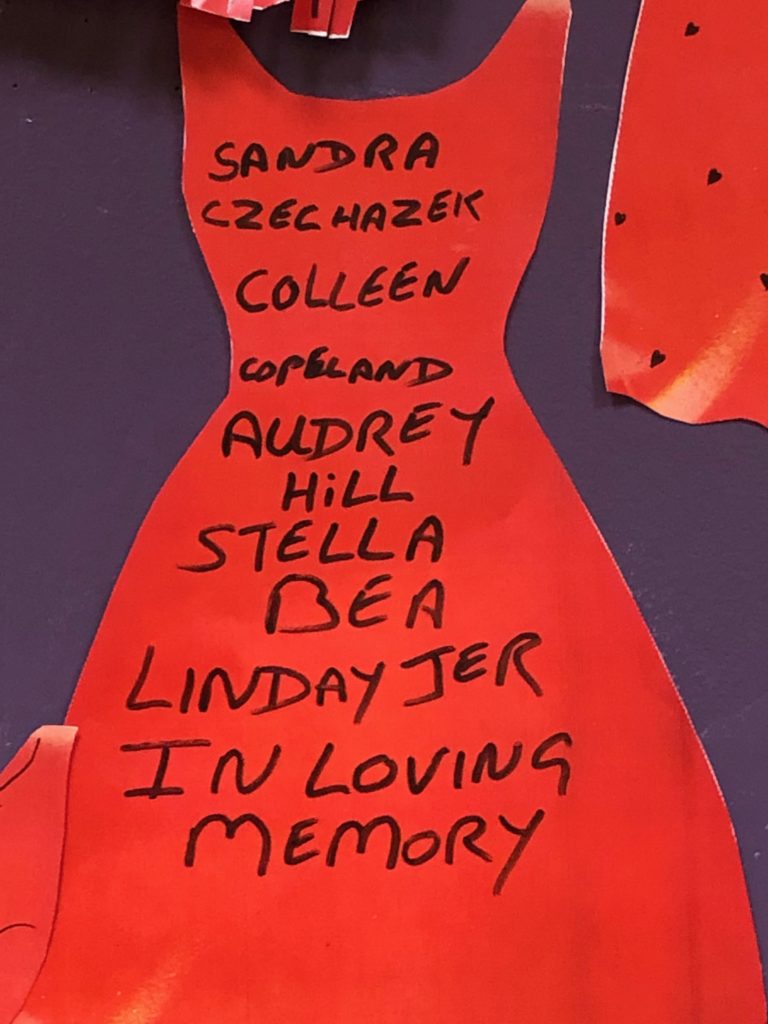 SANDRA
CZECHAZEK
COLLEEN
COPELAND
AUDREY
HiLL
STELLA
BEA
LINDAY JER
IN LOVING
MEMORY